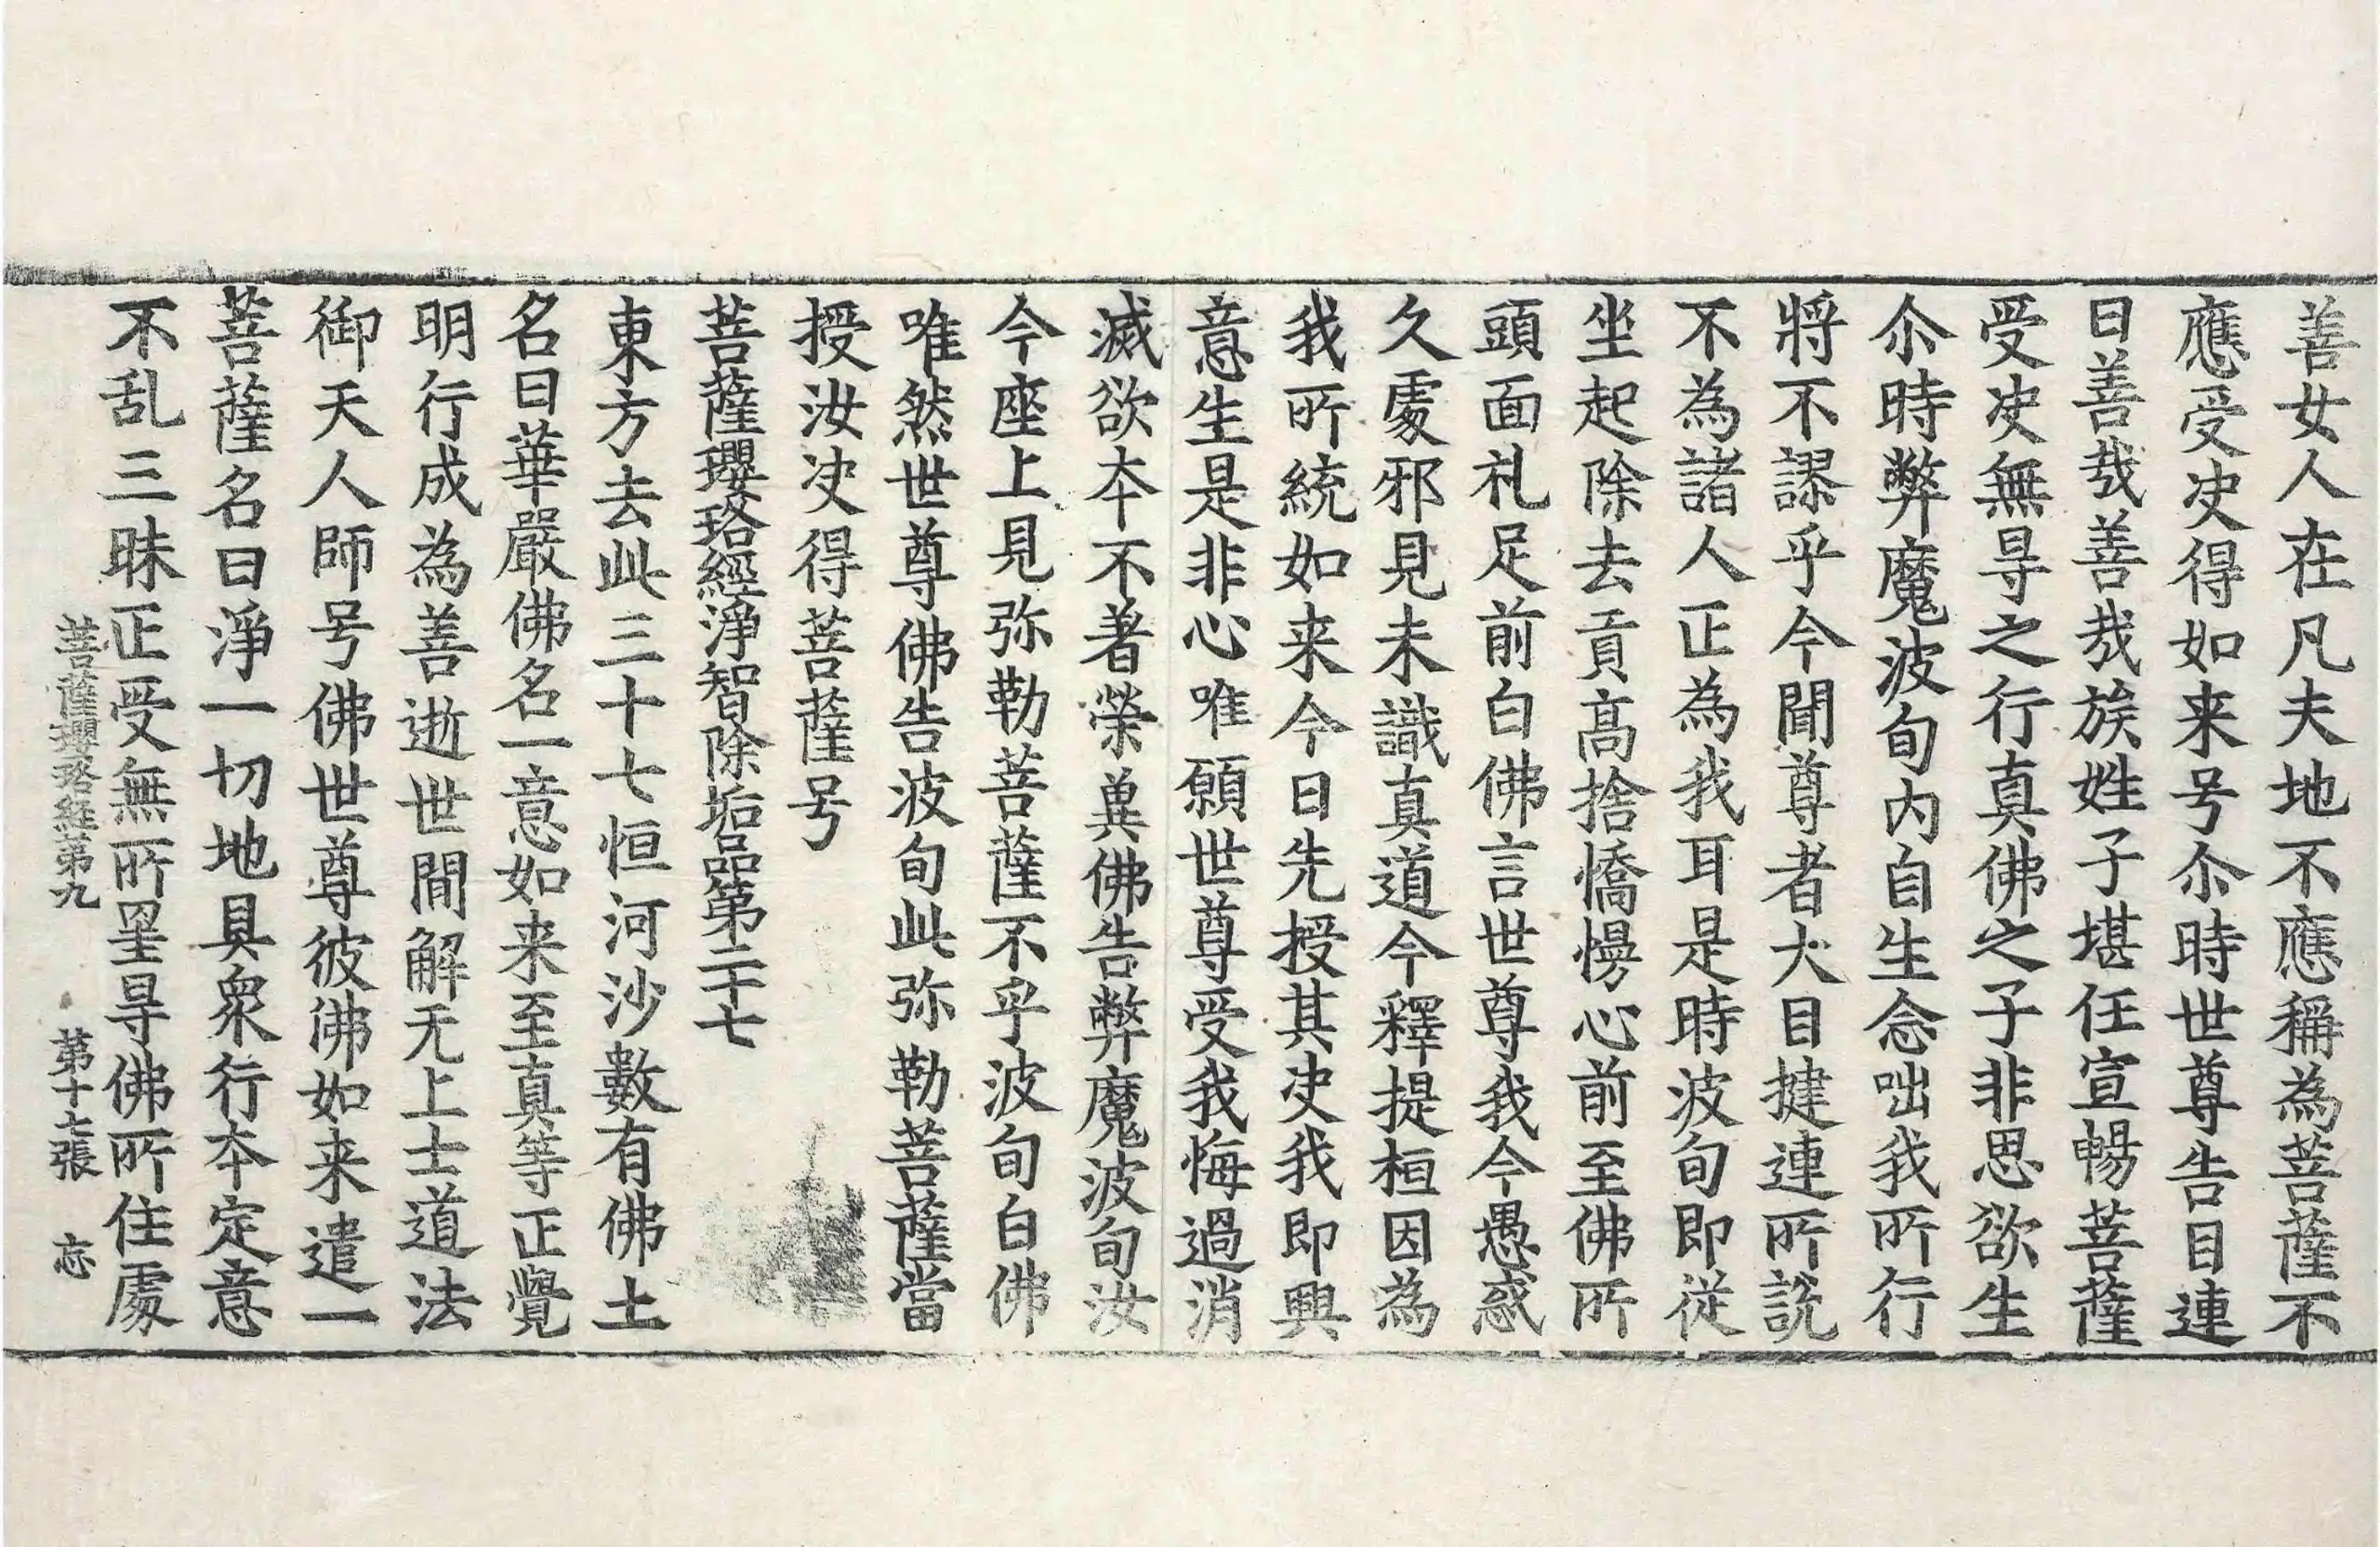 善女人在凡夫地不應稱為菩薩不
應受决得如来号尒時世尊告目連
曰善㢤善㢤族姓子堪任宣暢菩薩
受决無㝵之行真佛之子非思欲生
尒時弊魔波旬内自生念咄我所行
將不謬乎今聞尊者大目揵連所說
不為諸人正為我耳是時波旬即從
坐起除去貢高捨憍慢心前至佛所
頭面礼足前白佛言世尊我今愚惑
久處邪見未識真道今釋提桓因為
我所統如来今日先授其决我即興
意生是非心唯願世尊受我悔過消
滅欲本不著榮兾佛告弊魔波旬汝
今座上見弥勒菩薩不乎波旬白佛
唯然世尊佛告波旬此弥勒菩薩當
授汝决得菩薩号
菩薩瓔珞經淨智除垢品第二十七
東方去此三十七恒河沙數有佛土
名曰華嚴佛名一意如来至真等正覺
明行成為善逝世間解无上士道法
御天人師号佛世尊彼佛如来遣一
菩薩名曰淨一切地具衆行本定意
不乱三昧正受無所罣㝵佛所住處
菩薩瓔珞經第九　第十七張　忘